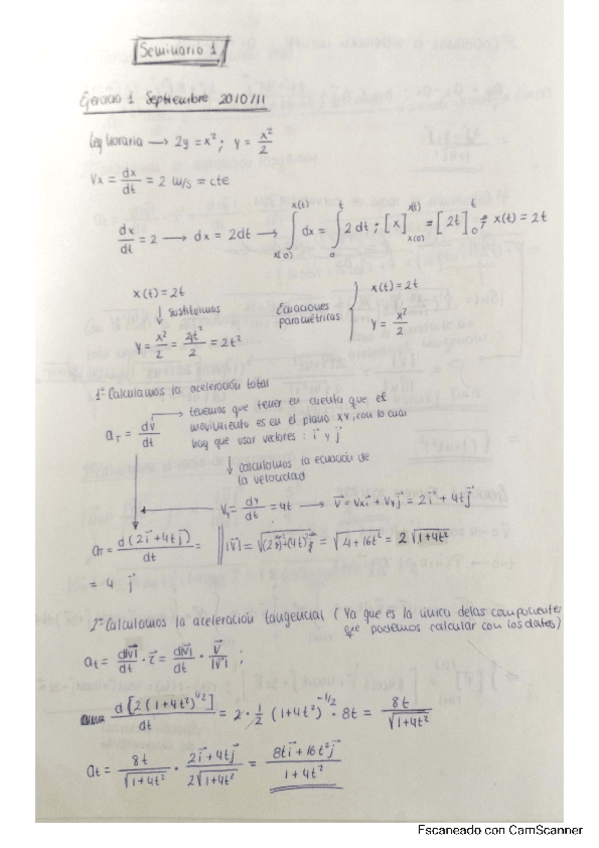 Seminario 1
Ejercicio 1 Septiembre 2010/11
Ley horaria → 2y = x²; y = x²/2
Vx = dx/dt = 2 m/s = cte
dx/dt = 2 → dx = 2dt → ∫_{x(0)}^{x(t)} dx = ∫_0^t 2dt ; [x]_{x(0)}^{x(t)} = [2t]_0^t ; x(t) = 2t
x(t) = 2t
↓ sustituimos
y = x²/2 = 4t²/2 = 2t²
Ecuaciones paramétricas { x(t) = 2t
y = x²/2
1º Calculamos la aceleración total
a_T = dv⃗/dt → tenemos que tener en cuenta que el
movimiento es en el plano xy, con lo cual
hay que usar vectores : i⃗ y j⃗
↓ calculamos la ecuación de
la velocidad
Vy = dy/dt = 4t → v⃗ = Vx i⃗ + Vy j⃗ = 2i⃗ + 4tj⃗
a_T = d(2i⃗+4tj⃗)/dt =
|v⃗| = √((2)²+(4t)²) = √(4+16t²) = 2√(1+4t²)
= 4 j⃗
2º Calculamos la aceleración tangencial (Ya que es la única de las componentes
que podemos calcular con los datos)
at = d|v⃗|/dt · τ⃗ = d|v⃗|/dt · v⃗/|v⃗| ;
d[2(1+4t²)^{1/2}]/dt = 2 · 1/2 (1+4t²)^{-1/2} · 8t = 8t/√(1+4t²)
at = 8t/√(1+4t²) · (2i⃗+4tj⃗)/(2√(1+4t²)) = (8ti⃗+16t²j⃗)/(1+4t²)
Escaneado con CamScanner